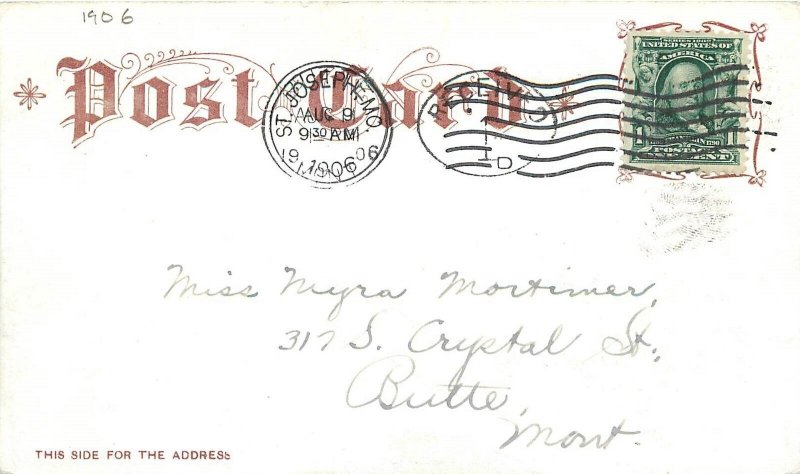 1906
Post Card
ST. JOSEPH, MO.
AUG 9
9 30 AM
1906
RECEIVED
1
D
SERIES 1902
UNITED STATES OF
AMERICA
POSTAGE
Miss Myra Mortimer,
317 S. Crystal St.,
Butte,
Mont.
THIS SIDE FOR THE ADDRESS